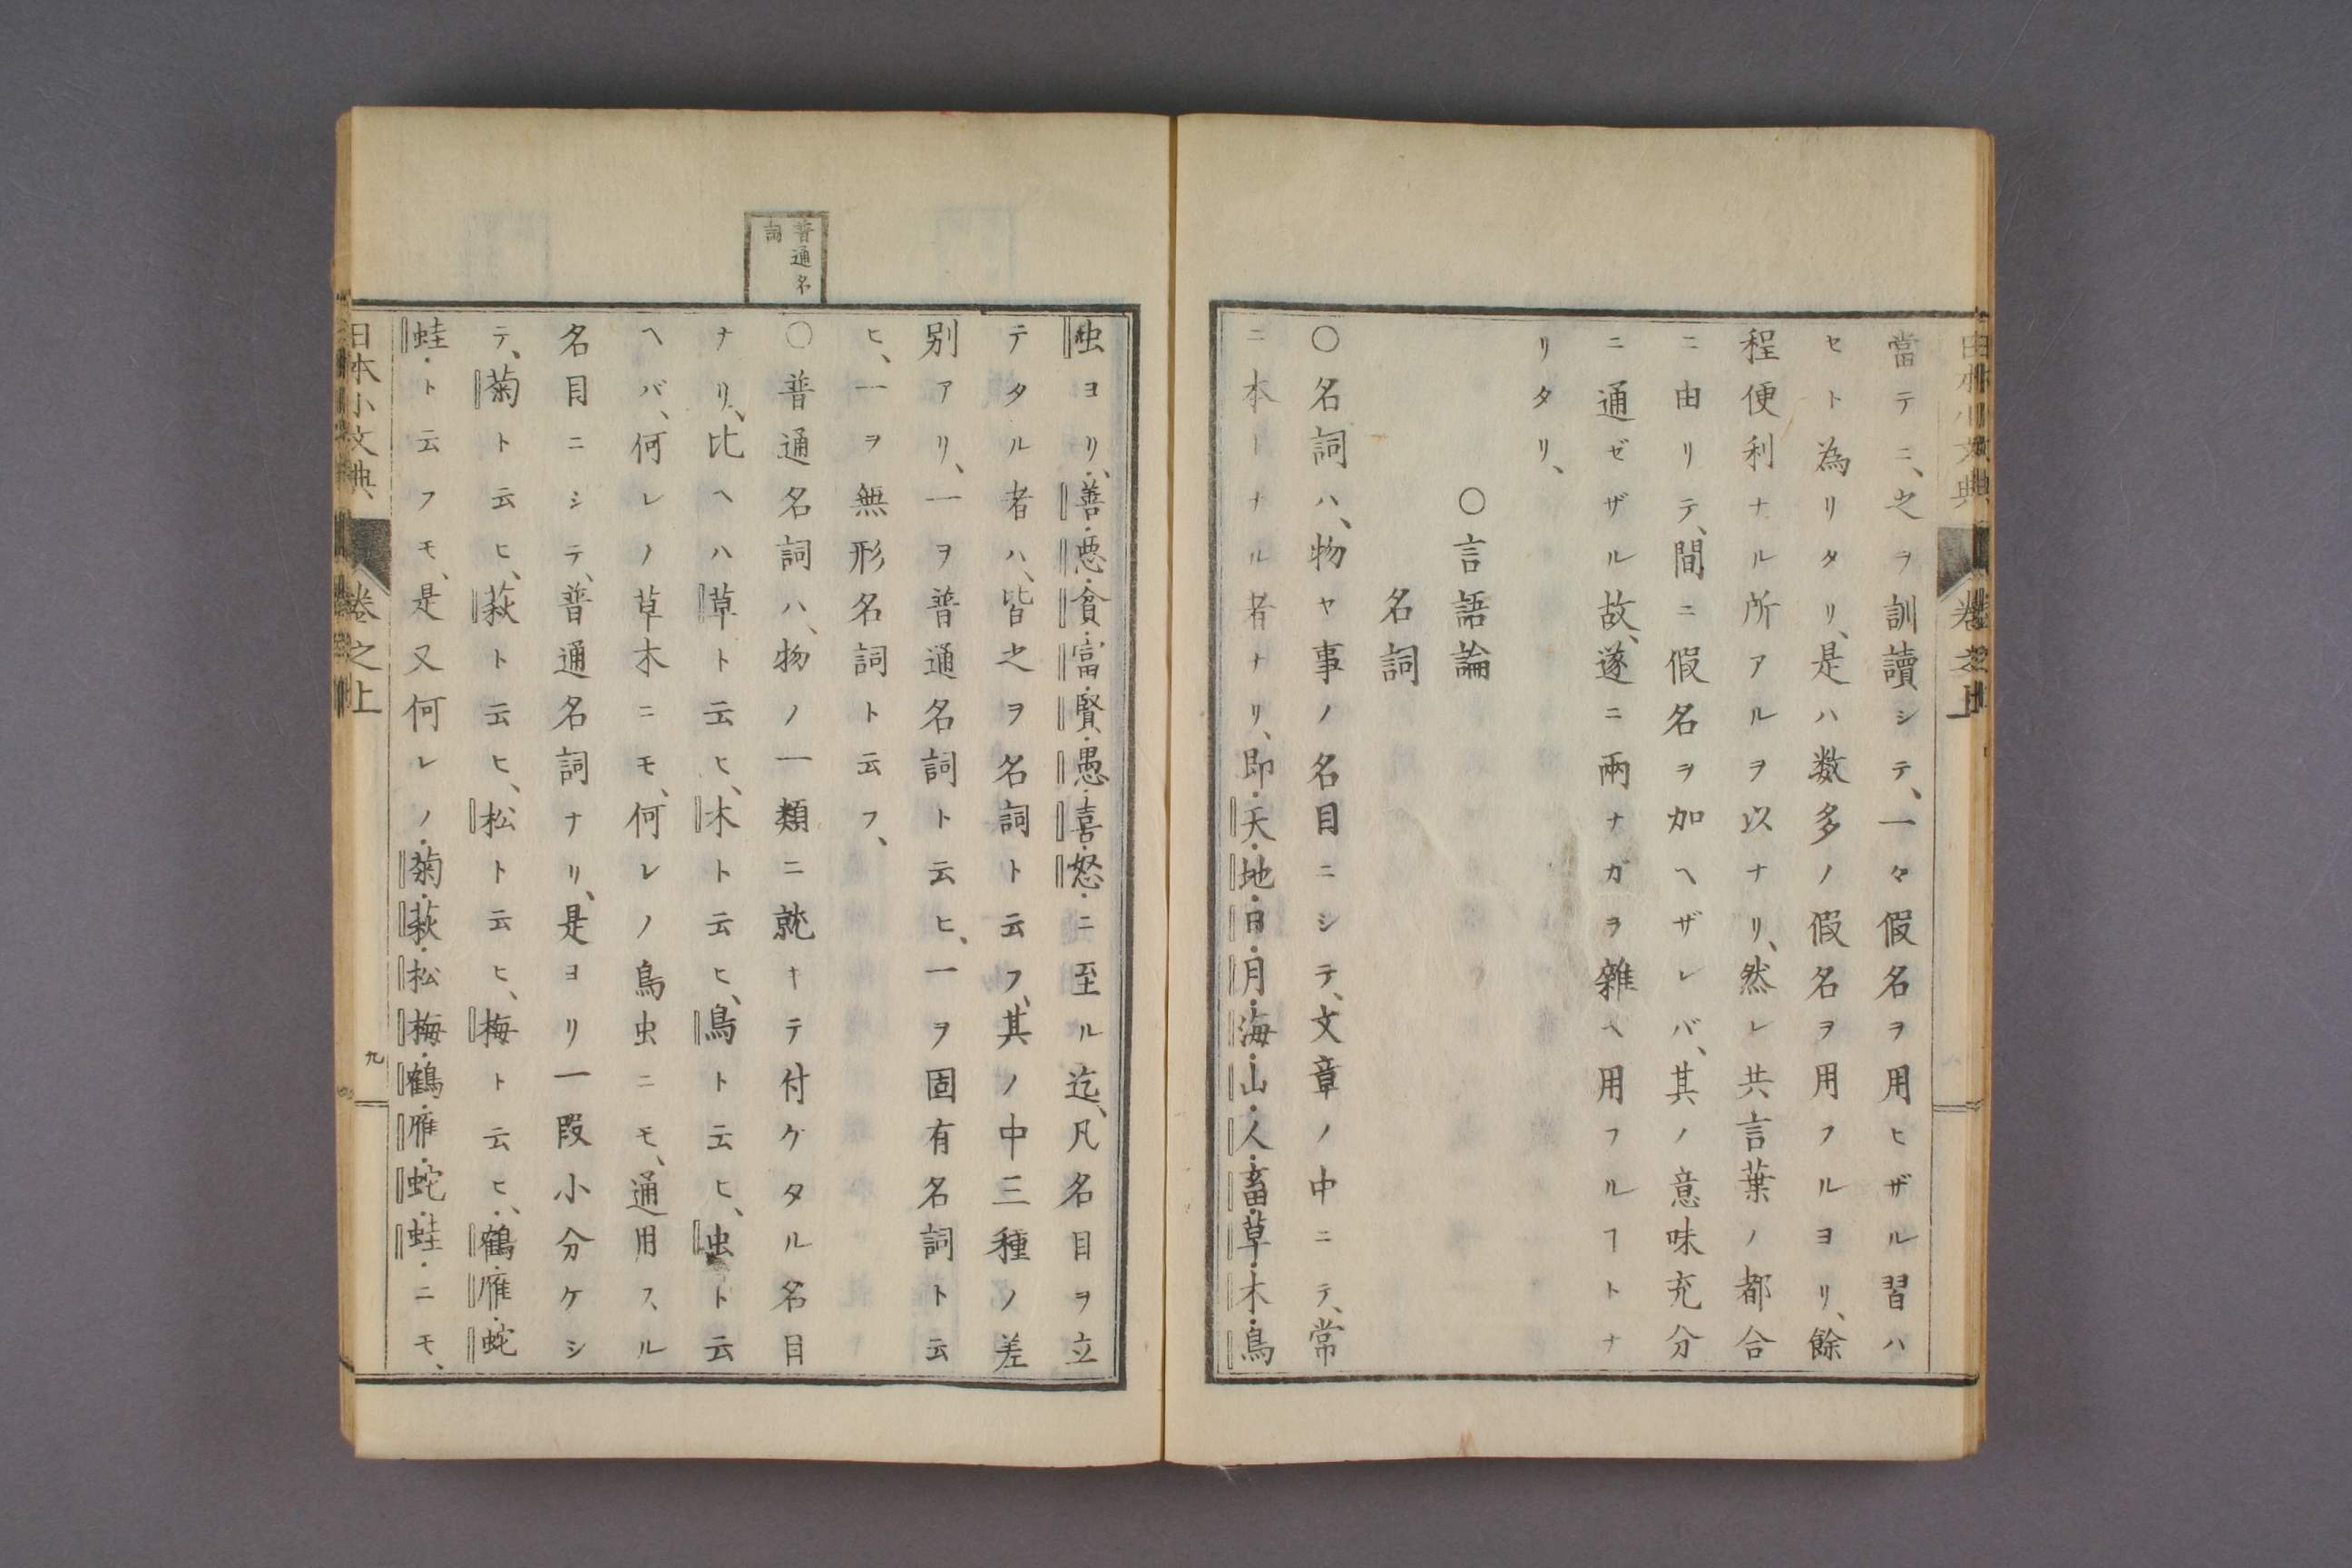 當テニ、之ヲ訓讀シテ、一々假名ヲ用ヒザル習ハ
セト為リタリ、是ハ数多ノ假名ヲ用フルヨリ、餘
程便利ナル所アルヲ以ナリ、然レ共言葉ノ都合
ニ由リテ、間ニ假名ヲ加ヘザレバ、其ノ意味充分
ニ通ゼザル故、遂ニ兩ナガラ雜ヘ用フルヿトナ
リタリ、
〇言語論
名詞
〇名詞ハ、物ヤ事ノ名目ニシテ、文章ノ中ニテ、常
ニ本トナル者ナリ、即・天・地・日・月・海・山・人・畜・草・木・鳥
虫ヨリ、善・悪・貧・富・賢・愚・喜・怒・ニ至ル迄、凡名目ヲ立
テタル者ハ、皆之ヲ名詞ト云フ、其ノ中三種ノ差
別アリ、一ヲ普通名詞ト云ヒ、一ヲ固有名詞ト云
ヒ、一ヲ無形名詞ト云フ、
普通名
詞
〇普通名詞ハ、物ノ一類ニ就キテ付ケタル名目
ナリ、比ヘハ草ト云ヒ、木ト云ヒ、鳥ト云ヒ、虫ト云
ヘバ、何レノ草木ニモ、何レノ鳥虫ニモ、通用スル
名目ニシテ、普通名詞ナリ、是ヨリ一段小分ケシ
テ、菊ト云ヒ、萩ト云ヒ、松ト云ヒ、梅ト云ヒ、鶴・雁・蛇
蛙・ト云フモ、是又何レノ・菊・萩・松・梅・鶴・雁・蛇・蛙・ニモ、
日本小文典
卷之上
九